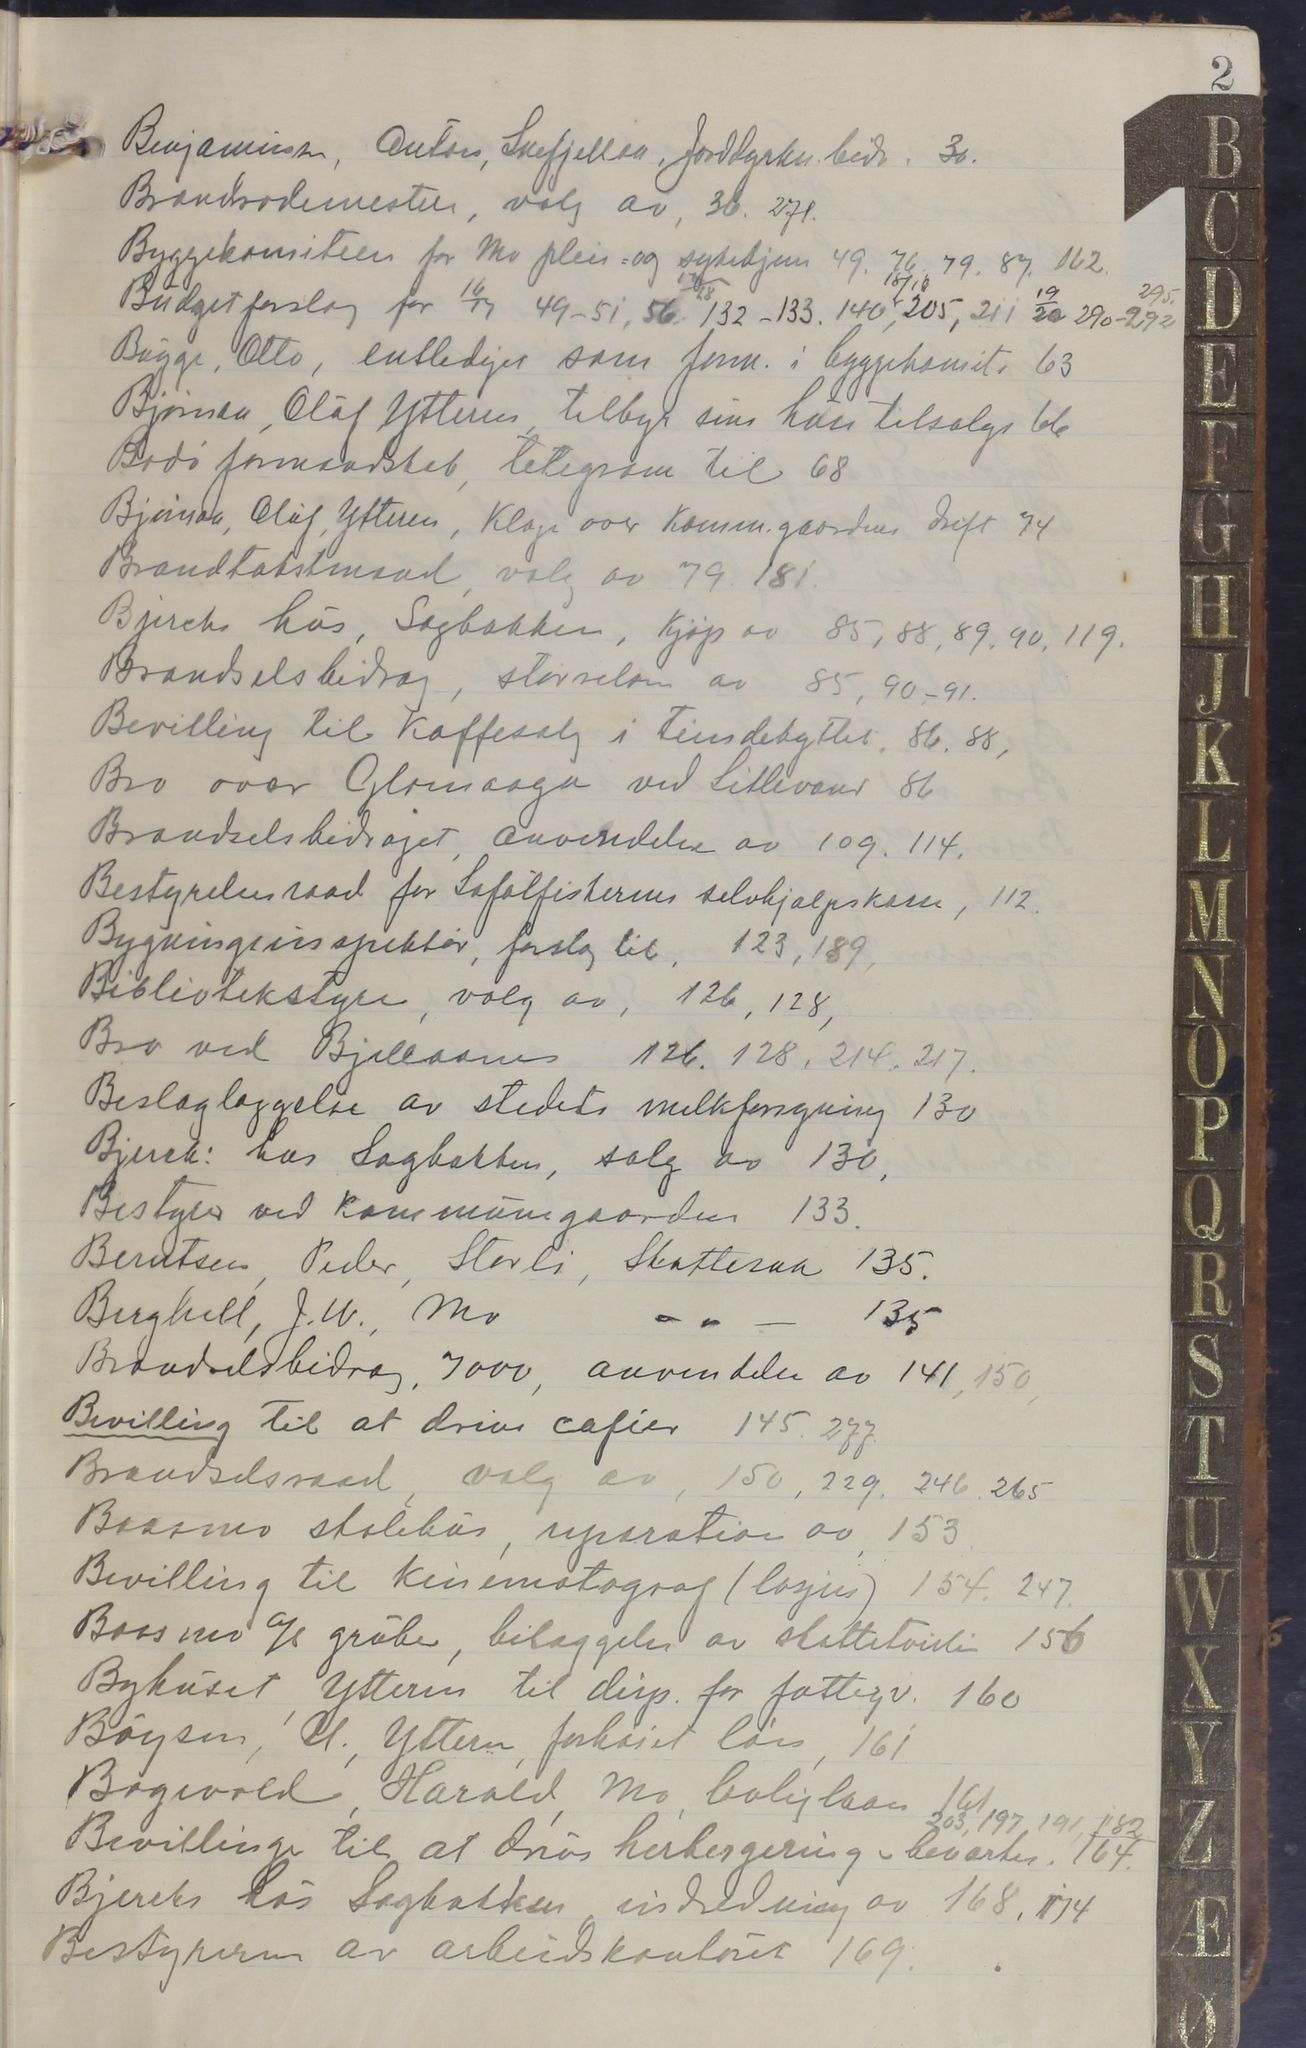 2
Benjaminsen, Anton, Snefjellaa, Jorddyrkn. bidr. 30.
Brandrodemester, valg av, 36. 271.
Byggekomiteen for Mo pleie- og sykehjem 49. 76. 79. 87. 162.
Budgetforslag for 16/17 49-51, 56 17/18 132-133. 140, 18/19 205, 211 19/20 290-292 295.
Bugge, Otto, entlediges som form. i byggekomite 63
Bjørnaa, Oluf Ytteren, tilbyr sin hus tilsalgs 66
Bodö formandskab, telegram til 68
Bjørnaa, Oluf, Ytteren, Klage over Komm.gaardens drift 74
Brandtakstmand, valg av 79. 181.
Bjercks hus, Sagbakken, Kjöp av 85, 88, 89, 90, 119.
Brændselsbidrag, störrelsen av 85, 90-91.
Bevilling til Kaffesalg i Tiendebyttet, 86, 88,
Bro over Glomaaga ved Litlevand 86
Brændselsbidraget, anvendelse av 109. 114.
Bestyrelsesraad for Lofotfiskernes selvhjælpskasse, 112.
Bygningsinspektör, forslag til, 123, 189,
Bibliotekstyre, valg av, 126, 128,
Bro ved Bjellaanes 126. 128. 214. 217.
Beslaglæggelse av stedets melkforsyning 130
Bjerck: hus Sagbakken, salg av 130,
Bestyrer ved Kommunegaarden 133.
Berntsen, Peder, Storli, Skattesak 135.
Berghell, J. W., Mo - " - 135
Brændselsbidrag, 7000, anvendelse av 141, 150,
Bevilling til at drive caféer 145. 277.
Brændselsraad, valg av, 150, 229. 246. 265
Baasmo skolehus, reparation av, 153
Bevilling til Kinematograf (lasjus) 154. 247.
Baasmo A/S gruber, bilæggelse av skattetviste 156
Byhuset, Ytteren til disp. for fattigv. 160
Böysen, U., Ytteren, forhöiet lön, 161
Bogevold, Harald, Mo, boliglaan 161
203, 197, 191, 182
Bevillinge til at drive herbergering & bevertn. 164.
Bjercks hus Sagbakken, indredning av 168, 174
Bestyreren av arbeidskontoret 169.
B
C
D
E
F
G
H
J
K
L
M
N
O
P
Q
R
S
T
U
W
X
Y
Z
Æ
Ø